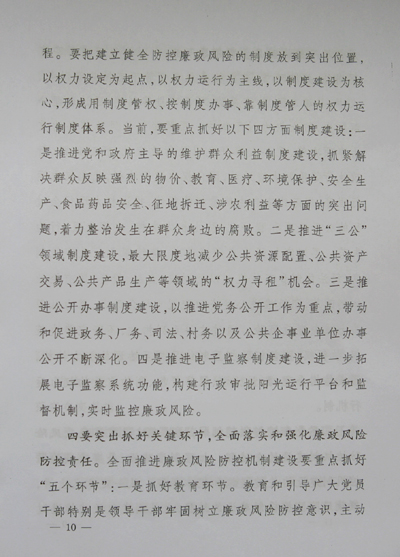 程。要把建立健全防控廉政风险的制度放到突出位置，
以权力设定为起点，以权力运行为主线，以制度建设为核
心，形成用制度管权、按制度办事、靠制度管人的权力运
行制度体系。当前，要重点抓好以下四方面制度建设：一
是推进党和政府主导的维护群众利益制度建设，抓紧解
决群众反映强烈的物价、教育、医疗、环境保护、安全生
产、食品药品安全、征地拆迁、涉农利益等方面的突出问
题，着力整治发生在群众身边的腐败。二是推进“三公”
领域制度建设，最大限度地减少公共资源配置、公共资产
交易、公共产品生产等领域的“权力寻租”机会。三是推
进公开办事制度建设，以推进党务公开工作为重点，带动
和促进政务、厂务、司法、村务以及公共企事业单位办事
公开不断深化。四是推进电子监察制度建设，进一步拓
展电子监察系统功能，构建行政审批阳光运行平台和监
督机制，实时监控廉政风险。
四要突出抓好关键环节，全面落实和强化廉政风险
防控责任。全面推进廉政风险防控机制建设要重点抓好
“五个环节”：一是抓好教育环节。教育和引导广大党员
干部特别是领导干部牢固树立廉政风险防控意识，主动
— 10 —